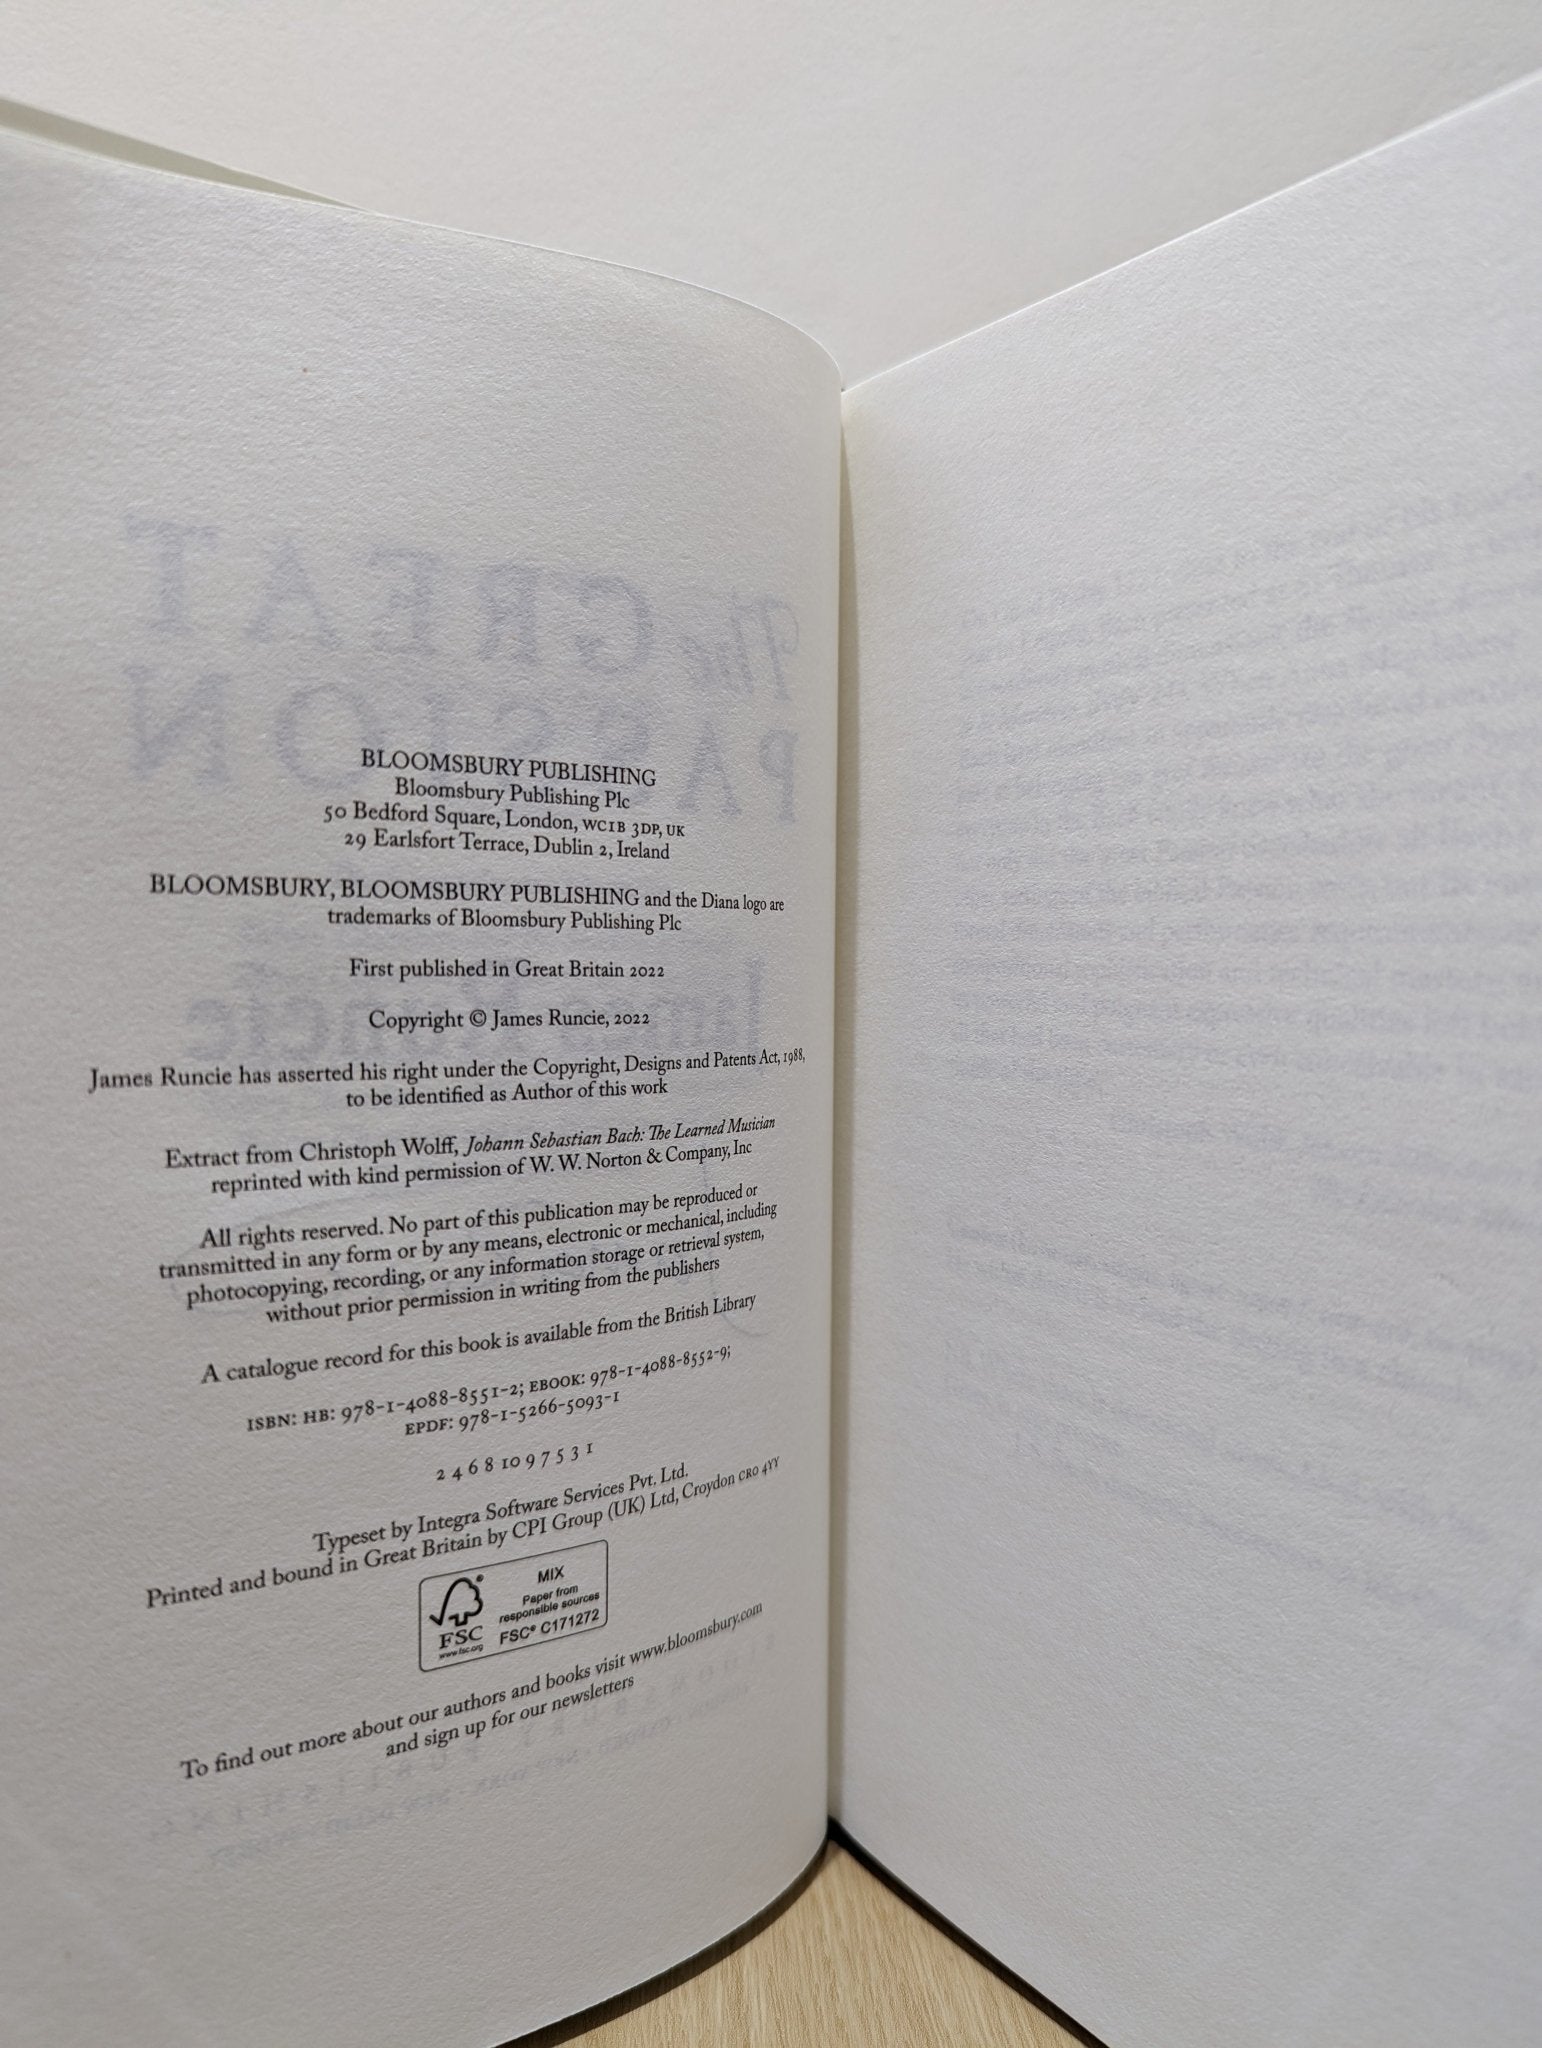 The GREAT
PASSION
James Runcie
BLOOMSBURY PUBLISHING
Bloomsbury Publishing Plc
50 Bedford Square, London, WC1B 3DP, UK
29 Earlsfort Terrace, Dublin 2, Ireland
BLOOMSBURY, BLOOMSBURY PUBLISHING and the Diana logo are
trademarks of Bloomsbury Publishing Plc
First published in Great Britain 2022
Copyright © James Runcie, 2022
James Runcie has asserted his right under the Copyright, Designs and Patents Act, 1988,
to be identified as Author of this work
Extract from Christoph Wolff, Johann Sebastian Bach: The Learned Musician
reprinted with kind permission of W. W. Norton & Company, Inc
All rights reserved. No part of this publication may be reproduced or
transmitted in any form or by any means, electronic or mechanical, including
photocopying, recording, or any information storage or retrieval system,
without prior permission in writing from the publishers
A catalogue record for this book is available from the British Library
ISBN: HB: 978-1-4088-8551-2; EBOOK: 978-1-4088-8552-9;
EPDF: 978-1-5266-5093-1
2 4 6 8 10 9 7 5 3 1
Typeset by Integra Software Services Pvt. Ltd.
Printed and bound in Great Britain by CPI Group (UK) Ltd, Croydon CR0 4YY
MIX
Paper from
responsible sources
FSC® C171272
FSC
www.fsc.org
To find out more about our authors and books visit www.bloomsbury.com
and sign up for our newsletters